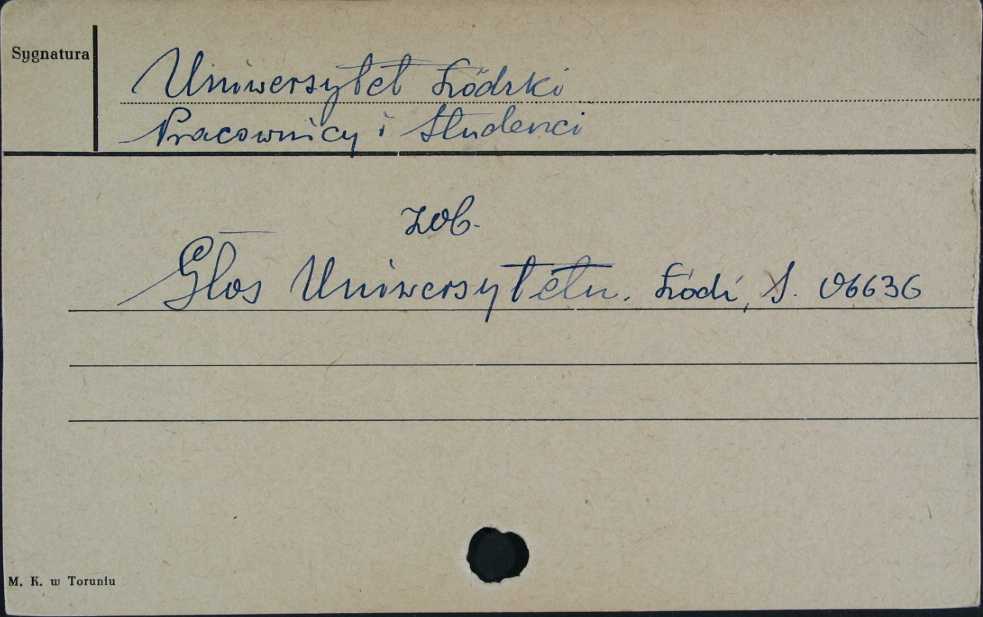 Sygnatura
Uniwersytet Łódzki
Pracownicy i Studenci
zob.
Głos Uniwersytetu. Łódź, S. 06636
M. K. w Toruniu